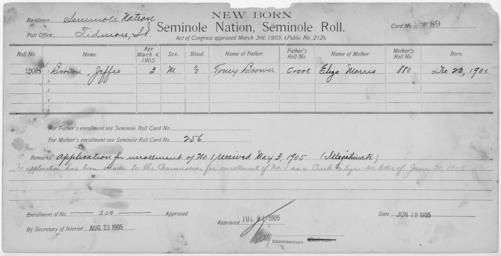 NEW BORN
Residence Seminole Nation
Seminole Nation, Seminole Roll.
Card No. 89
Post Office, Tidmore, I.T.
Act of Congress approved March 3rd, 1905. (Public No. 212).
Roll No. Name Age March 4, 1905 Sex. Blood. Name of Father. Father's Roll No. Name of Mother Mother's Roll No. Born.
208 Brown, Jeffie 3 M ½ Toney Brown Creek Eliza Morris 880 Dec 23, 1901
For Father's enrollment see Seminole Roll Card No.
For Mother's enrollment see Seminole Roll Card No. 256
Remarks: Application for enrollment of No 1 received May 2, 1905 (Illegitimate)
No application has been made to the Commission for enrollment of No 1 as a Creek citizen see letter of June 20 1905
Enrollment of No. 208 Approved
Approved 1905
Date JUN 1905
By Secretary of Interior AUG 23 1905